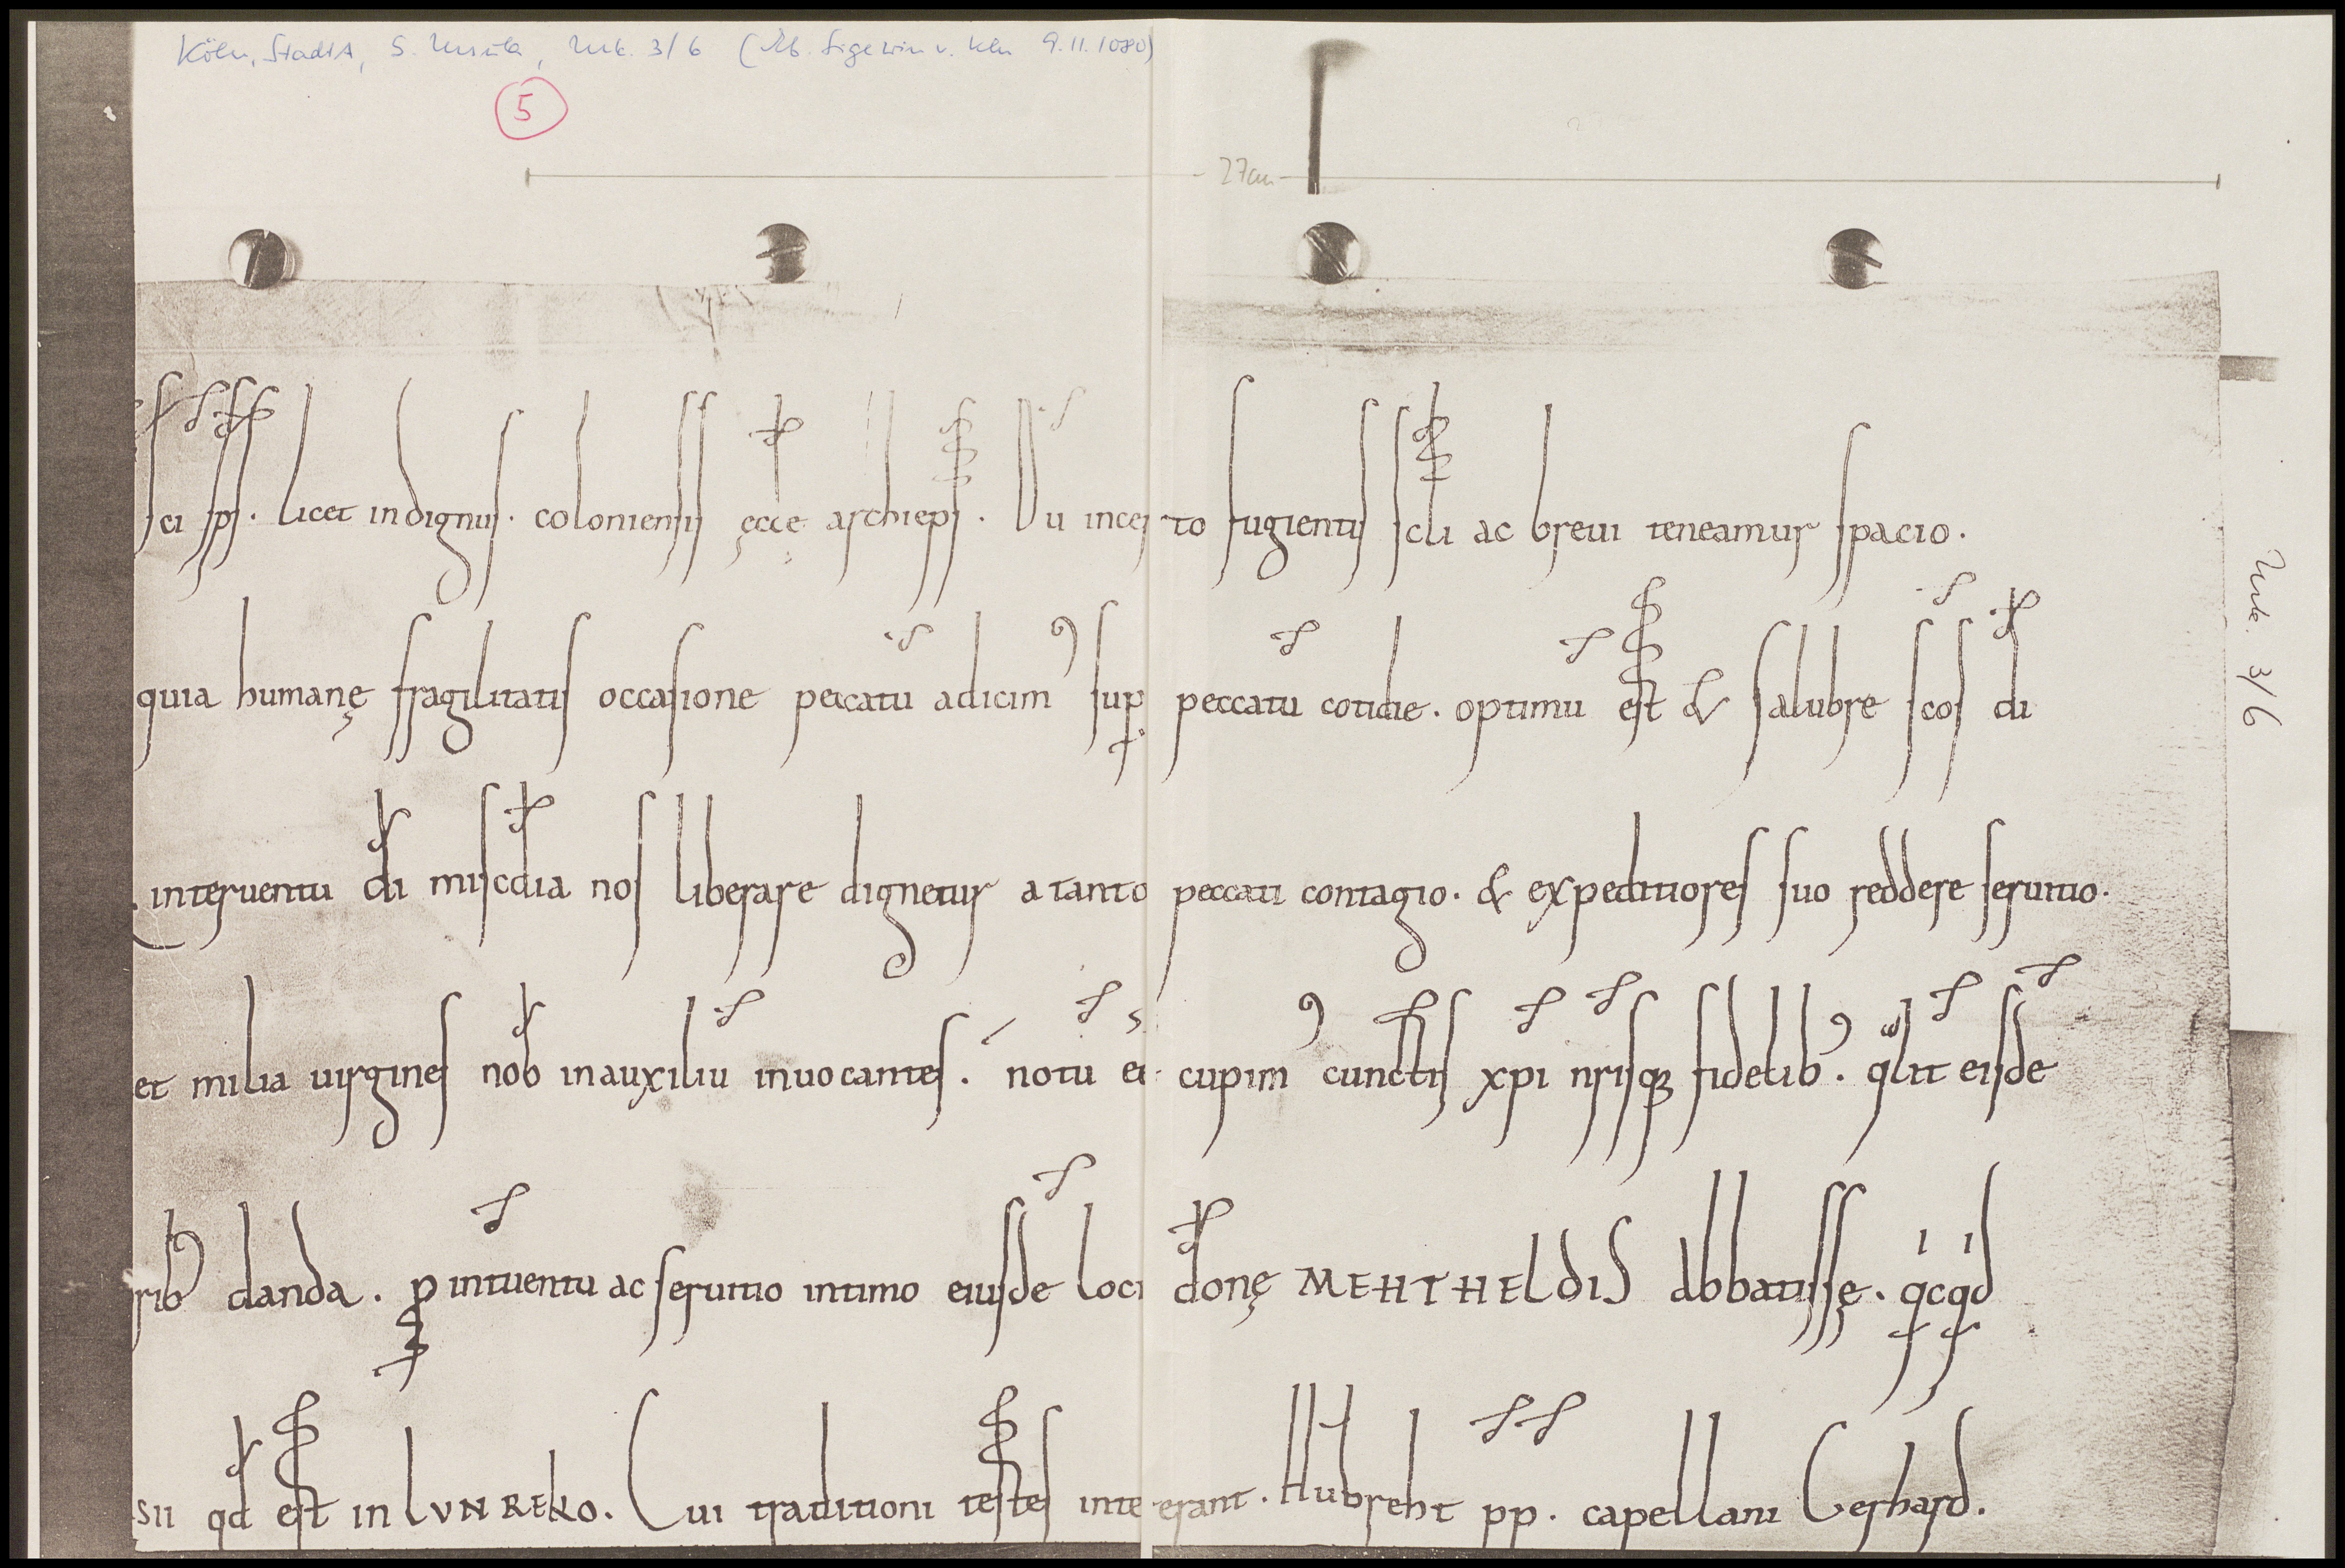 Köln, StadtA, S. Ursula, Urk. 3/6 (Eb. Sigewin v. Köln 9.11.1080)
5
27cm
sci sp̄s. licet indignus. coloniensis ęccę archiep̄s. Dū incerto fugientis scl̄i ac breui teneamur spacio.
quia humanę fragilitatis occasione peccatū adicim᾿ sup̱ peccatū cotidie. optimū est & salubre scōs dī
interuentu dī misc̄dia nos liberare dignetur a tanto peccati contagio. & expeditiores suo reddere seruitio.
et milia uirgines nob̄ in auxiliū inuocantes. notū eē cupim᾿ cunctis xp̄i nr̄isq; fidelib᾿. qͣlit̄ eisdē
rib᾿ danda. p̱ interuentū ac seruitio intimo eiusdē loci dōnę MEHTHELDIS abbatissę. qͥcqͥd
sii qd̄ est in LVNREKO. Cui traditioni testes intererant. Hubreht pp̄. capellani Gerhard.
Urk. 3/6